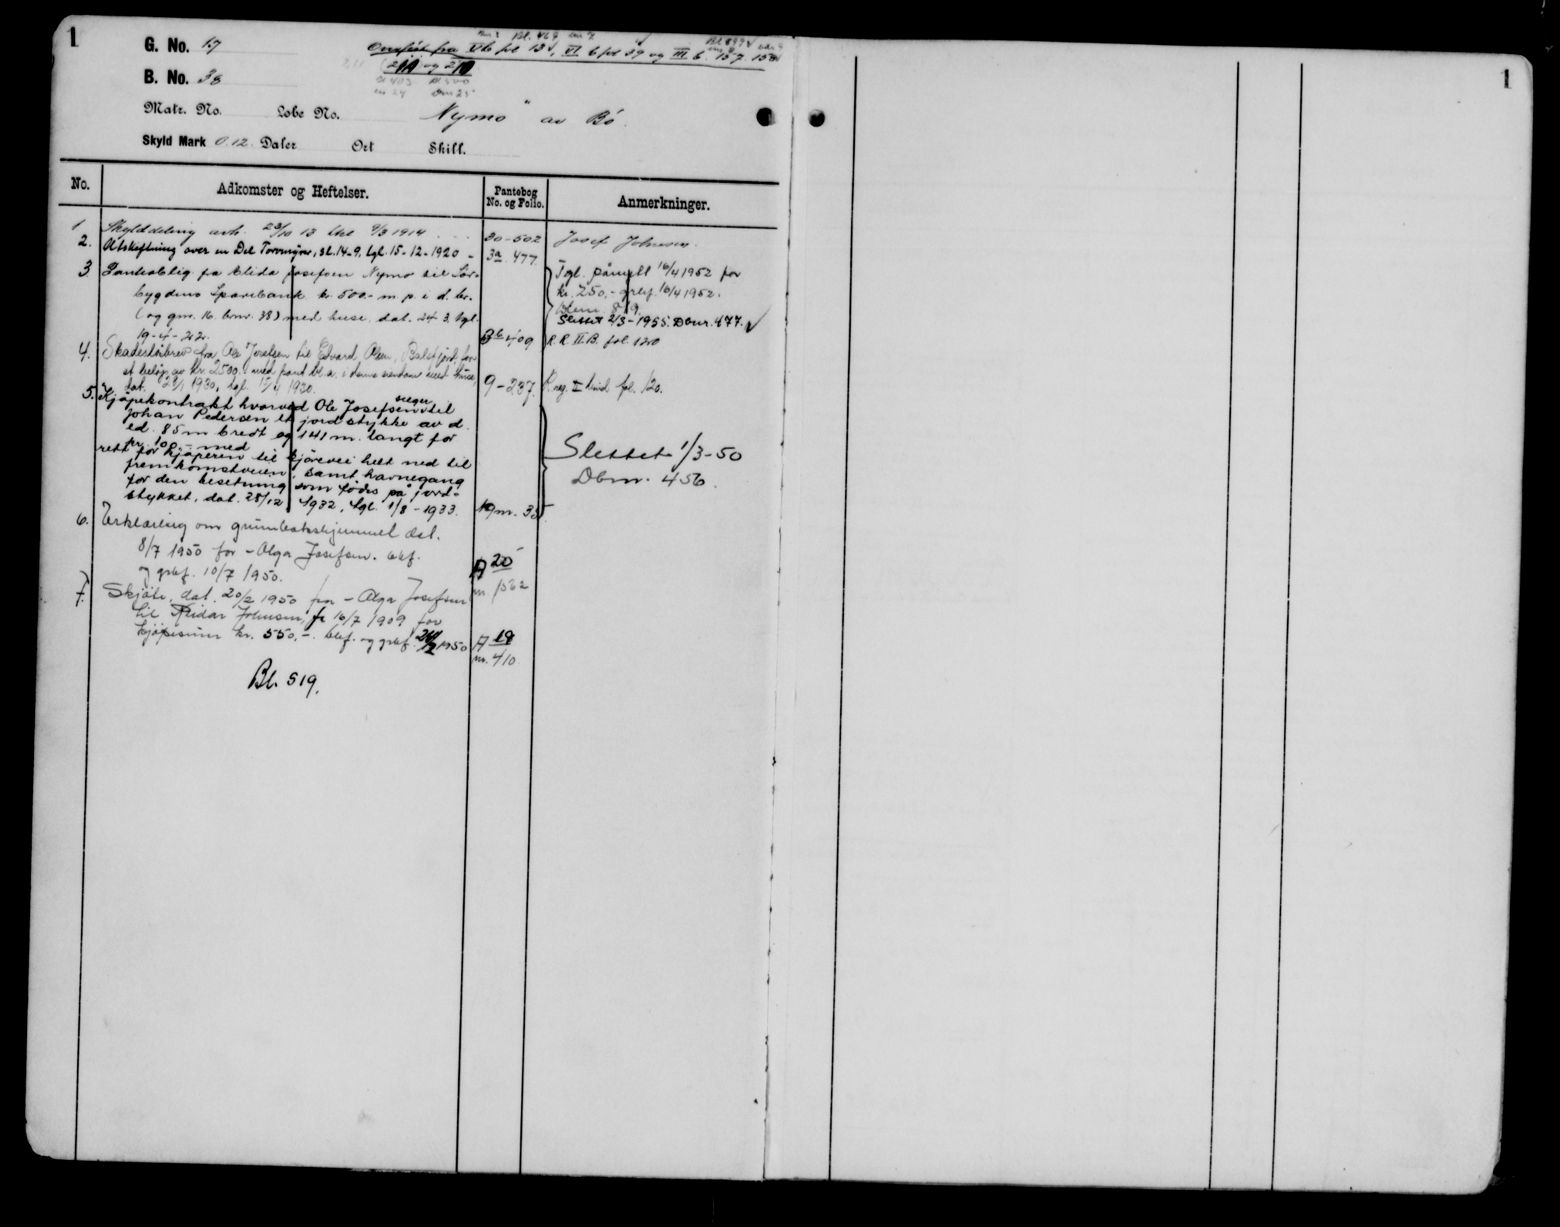 1
G. No. 17
B. No. 38
Overført fra Vb fol 131, VI b fol 39 og III b. 157. 158
Matr. No. Løbe No. "Nymo" av Bö.
Skyld Mark 0.12. Daler Ort Skill.
No. Adkomster og Heftelser. Pantebog No. og Folio. Anmerkninger.
1 Skylddeling avh. 23/10 13 thl 9/3 1914 30-502 Josef Johnsen.
2. Utskiftning over en Del Torvmyrer, sl. 14-9, tgl. 15-12-1920 - 3a. 477
3 Panteoblig fra Elida Josefsen Nymo til Sør-
bygdens Sparebank kr. 500.- m. p. i d. br.
(og gnr. 16. bnr. 38) med huse, dat. 24-3. tgl.
19-4-22. 3b 409
Tgl. påmeld 16/4 1952 for
kr. 250.- grbf. 16/4 1952.
Slettet 2/3-1955. Dbnr. 477. ✓
R. R. II B. fol. 120
4. Skadesløsbrev fra Ole Josefsen til Edvard Olsen, Balsfjord, for
et beløp av kr. 2500.- med pant bl. a. i denne eiendom med huse,
dat. 29/1 1930, tgl. 15/4 1930. 9-287. R reg. I bind fol. 120.
5. Kjøpekontrakt hvorved Ole Josefsen selger til
Johan Pedersen et jordstykke av d.
ed. 85 m bredt og 141 m. langt for
kr. 100.- med
rett for kjøperen til kjørevei helt ned til
fremkomstveien, samt havnegang
for den besetning som fødes på jord-
stykket, dat. 28/12 1932, tgl. 1/8-1933. 10 m. 35
Slettet 1/3-50
Dbnr. 456.
6. Erklæring om grunnbokshjemmel dat.
8/7 1950 for - Olga Josefsen. bkf.
og grbf. 10/7 1950. A 20 nr. 1562
7. Skjøte, dat. 20/2 1950 fra - Olga Josefsen
til Reidar Johnsen, f. 16/7 1909 for
kjøpesum kr. 550.-. bkf. og grbf. 1950 A 19 nr. 410
Bl. 519.
1